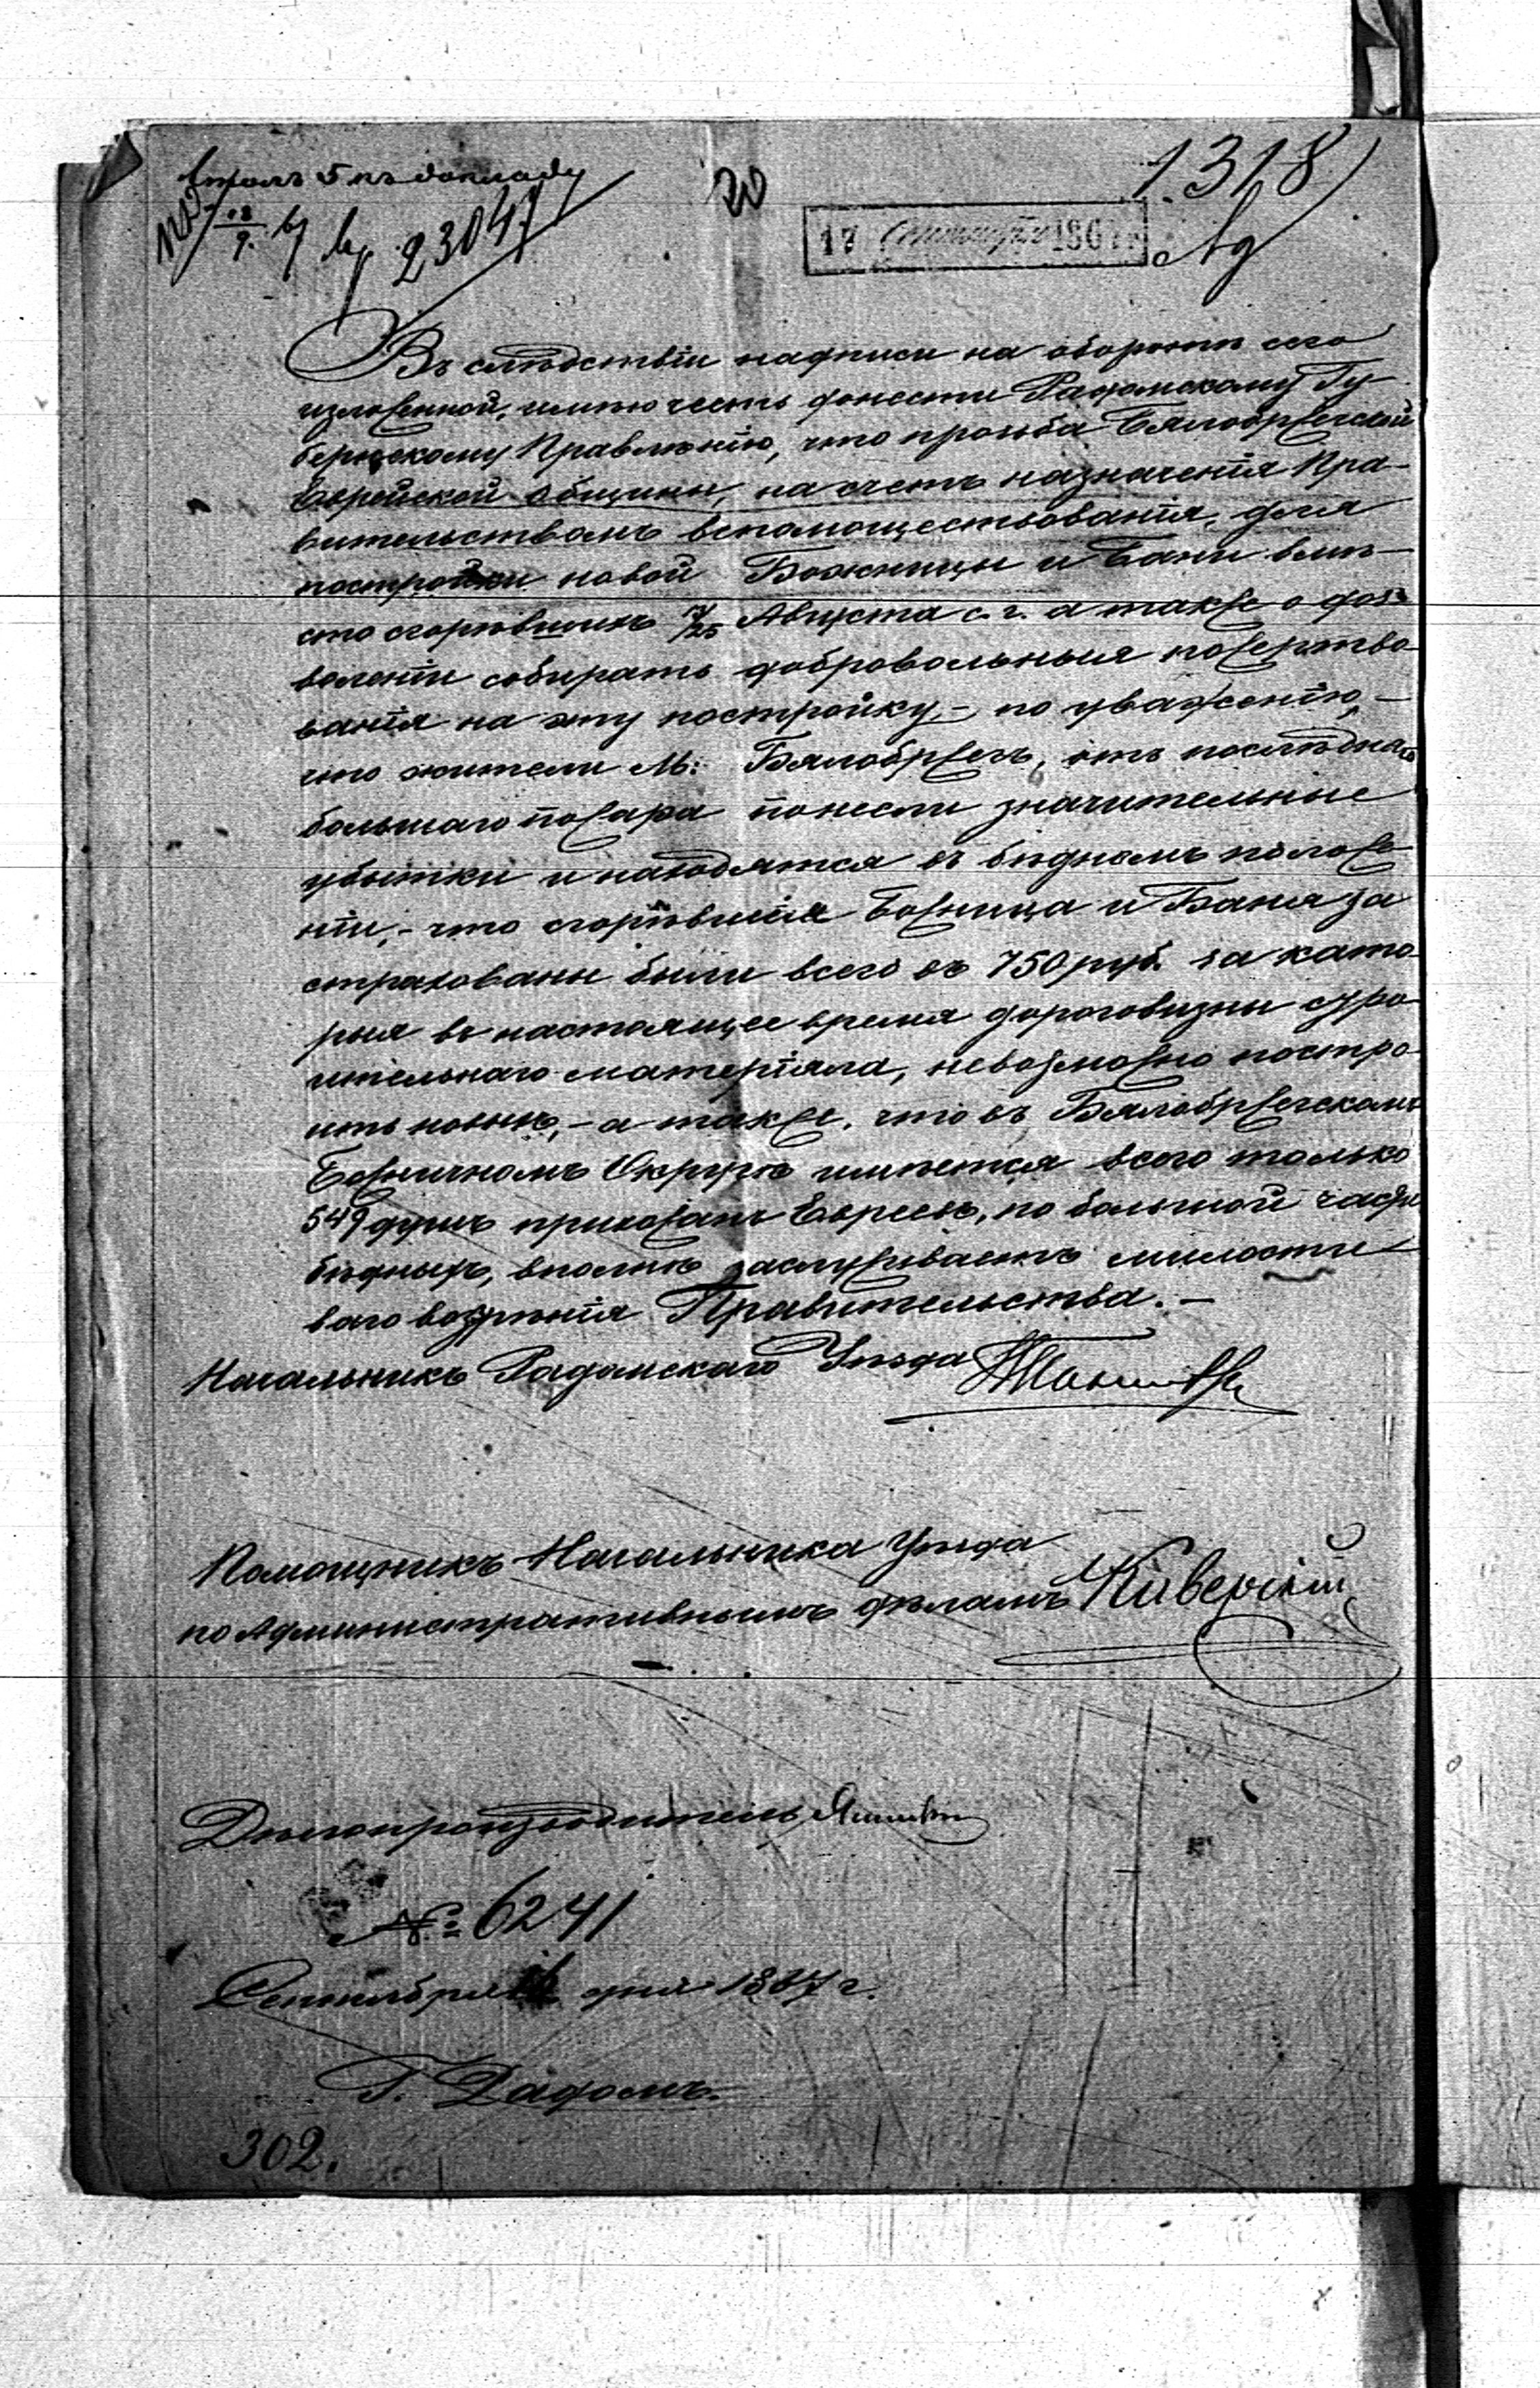 столъ 5 къ докладу
18/9 67 23047
20
1318
17 Сентября 186
Въ слѣдствіи надписи на оборотѣ сего
изложенной, имѣю честь донести Радомскому Гу-
бернскому Правленію, что прозьба Бялобржегской
Еврейской Общины, на счетъ назначенія Пра-
вительствомъ вспомоществованія, для
постройки новой Божницы и Бани вмѣ-
сто сгорѣвшихъ 7/25 Августа с. г. а также о доз-
воленіи собирать добровольныя пожертво-
ванія на эту постройку, - по уваженію, -
что жители М: Бялобржегъ, отъ послѣдняго
большаго пожара понесли значительные
убытки и находятся въ бѣдномъ положе-
ніи, - что сгорѣвшія Божница и Баня за
страхованы были всего въ 750 руб. за като-
рыя въ настоящее время дороговизны стро
ительнаго матеріяла, невозможно постро-
ить новыя, - а также, что въ Бялобржегскомъ
Божничномъ Округѣ имѣется всего только
549 душъ прихожанъ Евреевъ, по большой части
бѣдныхъ, вполнѣ заслуживаетъ милости-
ваго воззрѣнія Правительства. -
Началъникъ Радомскаго Уѣзда
Помощникъ Начальника Уѣзда
по Административнымъ дѣламъ
Дѣлопроизводитель
№ 6241
Сентября дня 1867 г.
Г. Радомъ.
302.